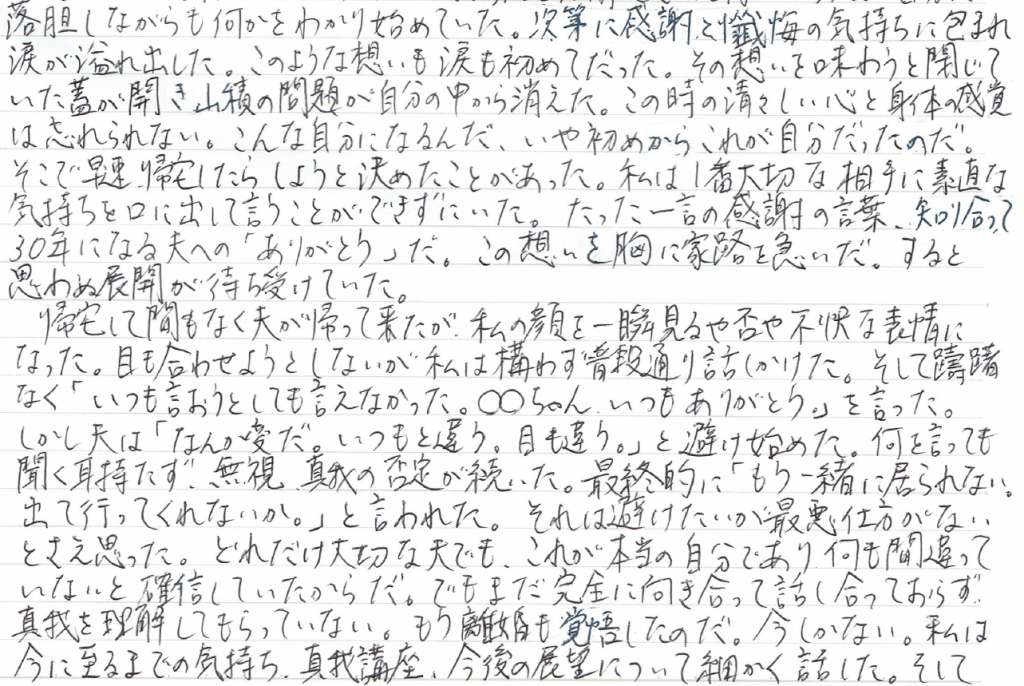 落胆しながらも何かをわかり始めていた。次第に感謝と懺悔の気持ちに包まれ
涙が溢れ出した。このような想いも涙も初めてだった。その想いを味わうと閉じて
いた蓋が開き山積の問題が自分の中から消えた。この時の清々しい心と身体の感覚
は忘れられない。こんな自分になるんだ、いや初めからこれが自分だったのだ。
そこで早速、帰宅したらしようと決めたことがあった。私は1番大切な相手に素直な
気持ちを口に出して言うことができずにいた。たった一言の感謝の言葉、知り合って
30年になる夫への「ありがとう」だ。この想いを胸に家路を急いだ。すると
思わぬ展開が待ち受けていた。
帰宅して間もなく夫が帰って来たが、私の顔を一瞬見るや否や不快な表情に
なった。目も合わせようとしないが私は構わず普段通り話しかけた。そして躊躇
なく「いつも言おうとしても言えなかった。〇〇ちゃん、いつもありがとう。」を言った。
しかし夫は「なんか変だ。いつもと違う。目も違う。」と避け始めた。何と言っても
聞く耳持たず、無視、真我の否定が続いた。最終的に「もう一緒に居られない。
出て行ってくれないか。」と言われた。それは避けたいが最悪仕方がない
とさえ思った。どれだけ大切な夫でも、これが本当の自分であり何も間違って
いないと確信していたからだ。でもまだ完全に向き合って話し合っておらず、
真我を理解してもらっていない。もう離婚も覚悟したのだ。今しかない。私は
今に至るまでの気持ち、真我講座、今後の展望について細かく話した。そして